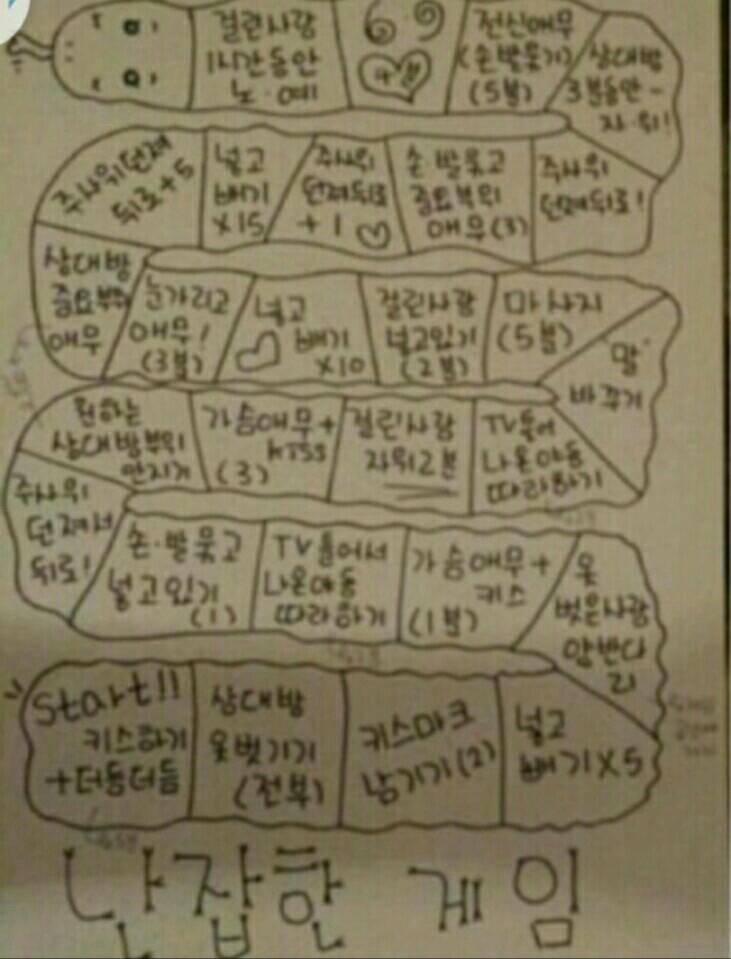 걸린사람
1시간동안
노·예
69
전신애무
(손발묶기)
(5분)
상대방
3분동안-
자·위!
주사위던져
뒤로+5
넣고
빼기
x15
주사위
던져뒤로
+1
손·발묶고
중요부위
애무(3)
주사위
던져뒤로!
상대방
중요부위
애무
눈가리고
애무!
(3분)
넣고
빼기
x10
걸린사람
넣고있기
(2분)
마사지
(5분)
"말"
바꾸기
원하는
상대방부위
만지기
가슴애무+
kiss
(3)
걸린사람
자위2분
TV틀어
나온야동
따라하기
주사위
던져서
뒤로!
손·발묶고
넣고있기
(1)
TV틀어서
나온야동
따라하기
가슴애무+
키스
(1분)
옷
벗은사람
앞반다
리
start!!
키스하기
+더듬더듬
상대방
옷벗기기
(전부)
키스마크
남기기(2)
넣고
빼기x5
난잡한 게임